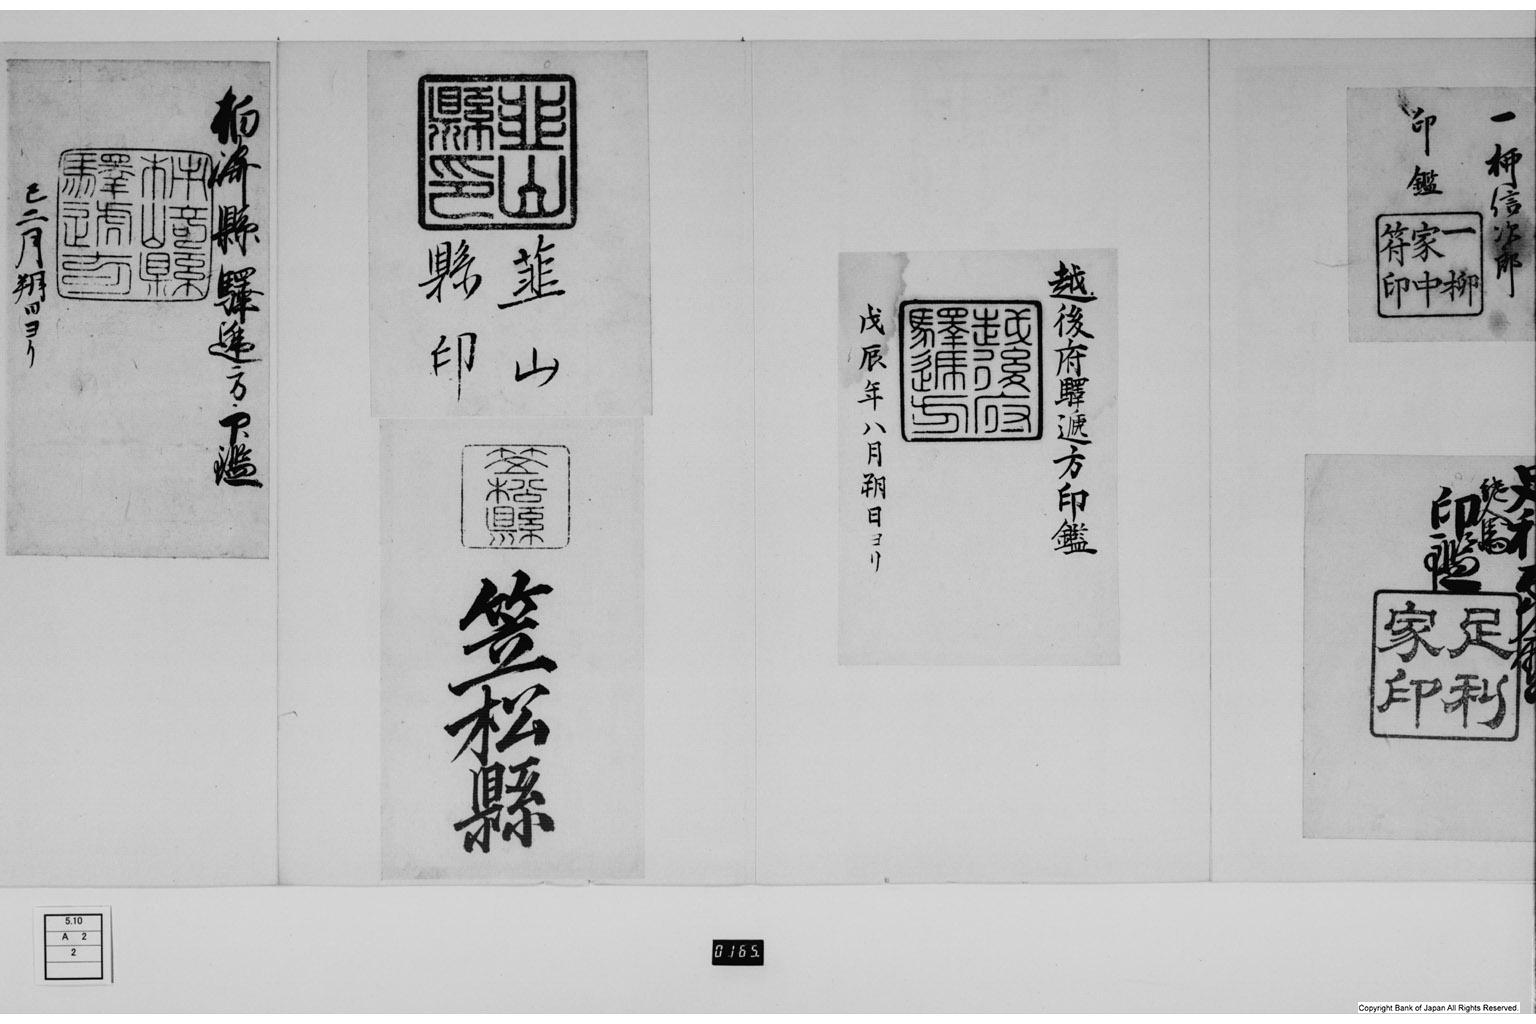 一柳信次郎
印鑑
一柳
家中
符印
印鑑
足利
家印
越後府驛逓方印鑑
越後府
驛逓方
戊辰年八月朔日ヨリ
韮山
縣印
韮山
縣印
笠松縣
笠松縣
縣驛逓方印鑑
巳二月朔日ヨリ
5.10
A 2
2
0165
Copyright Bank of Japan All Rights Reserved.